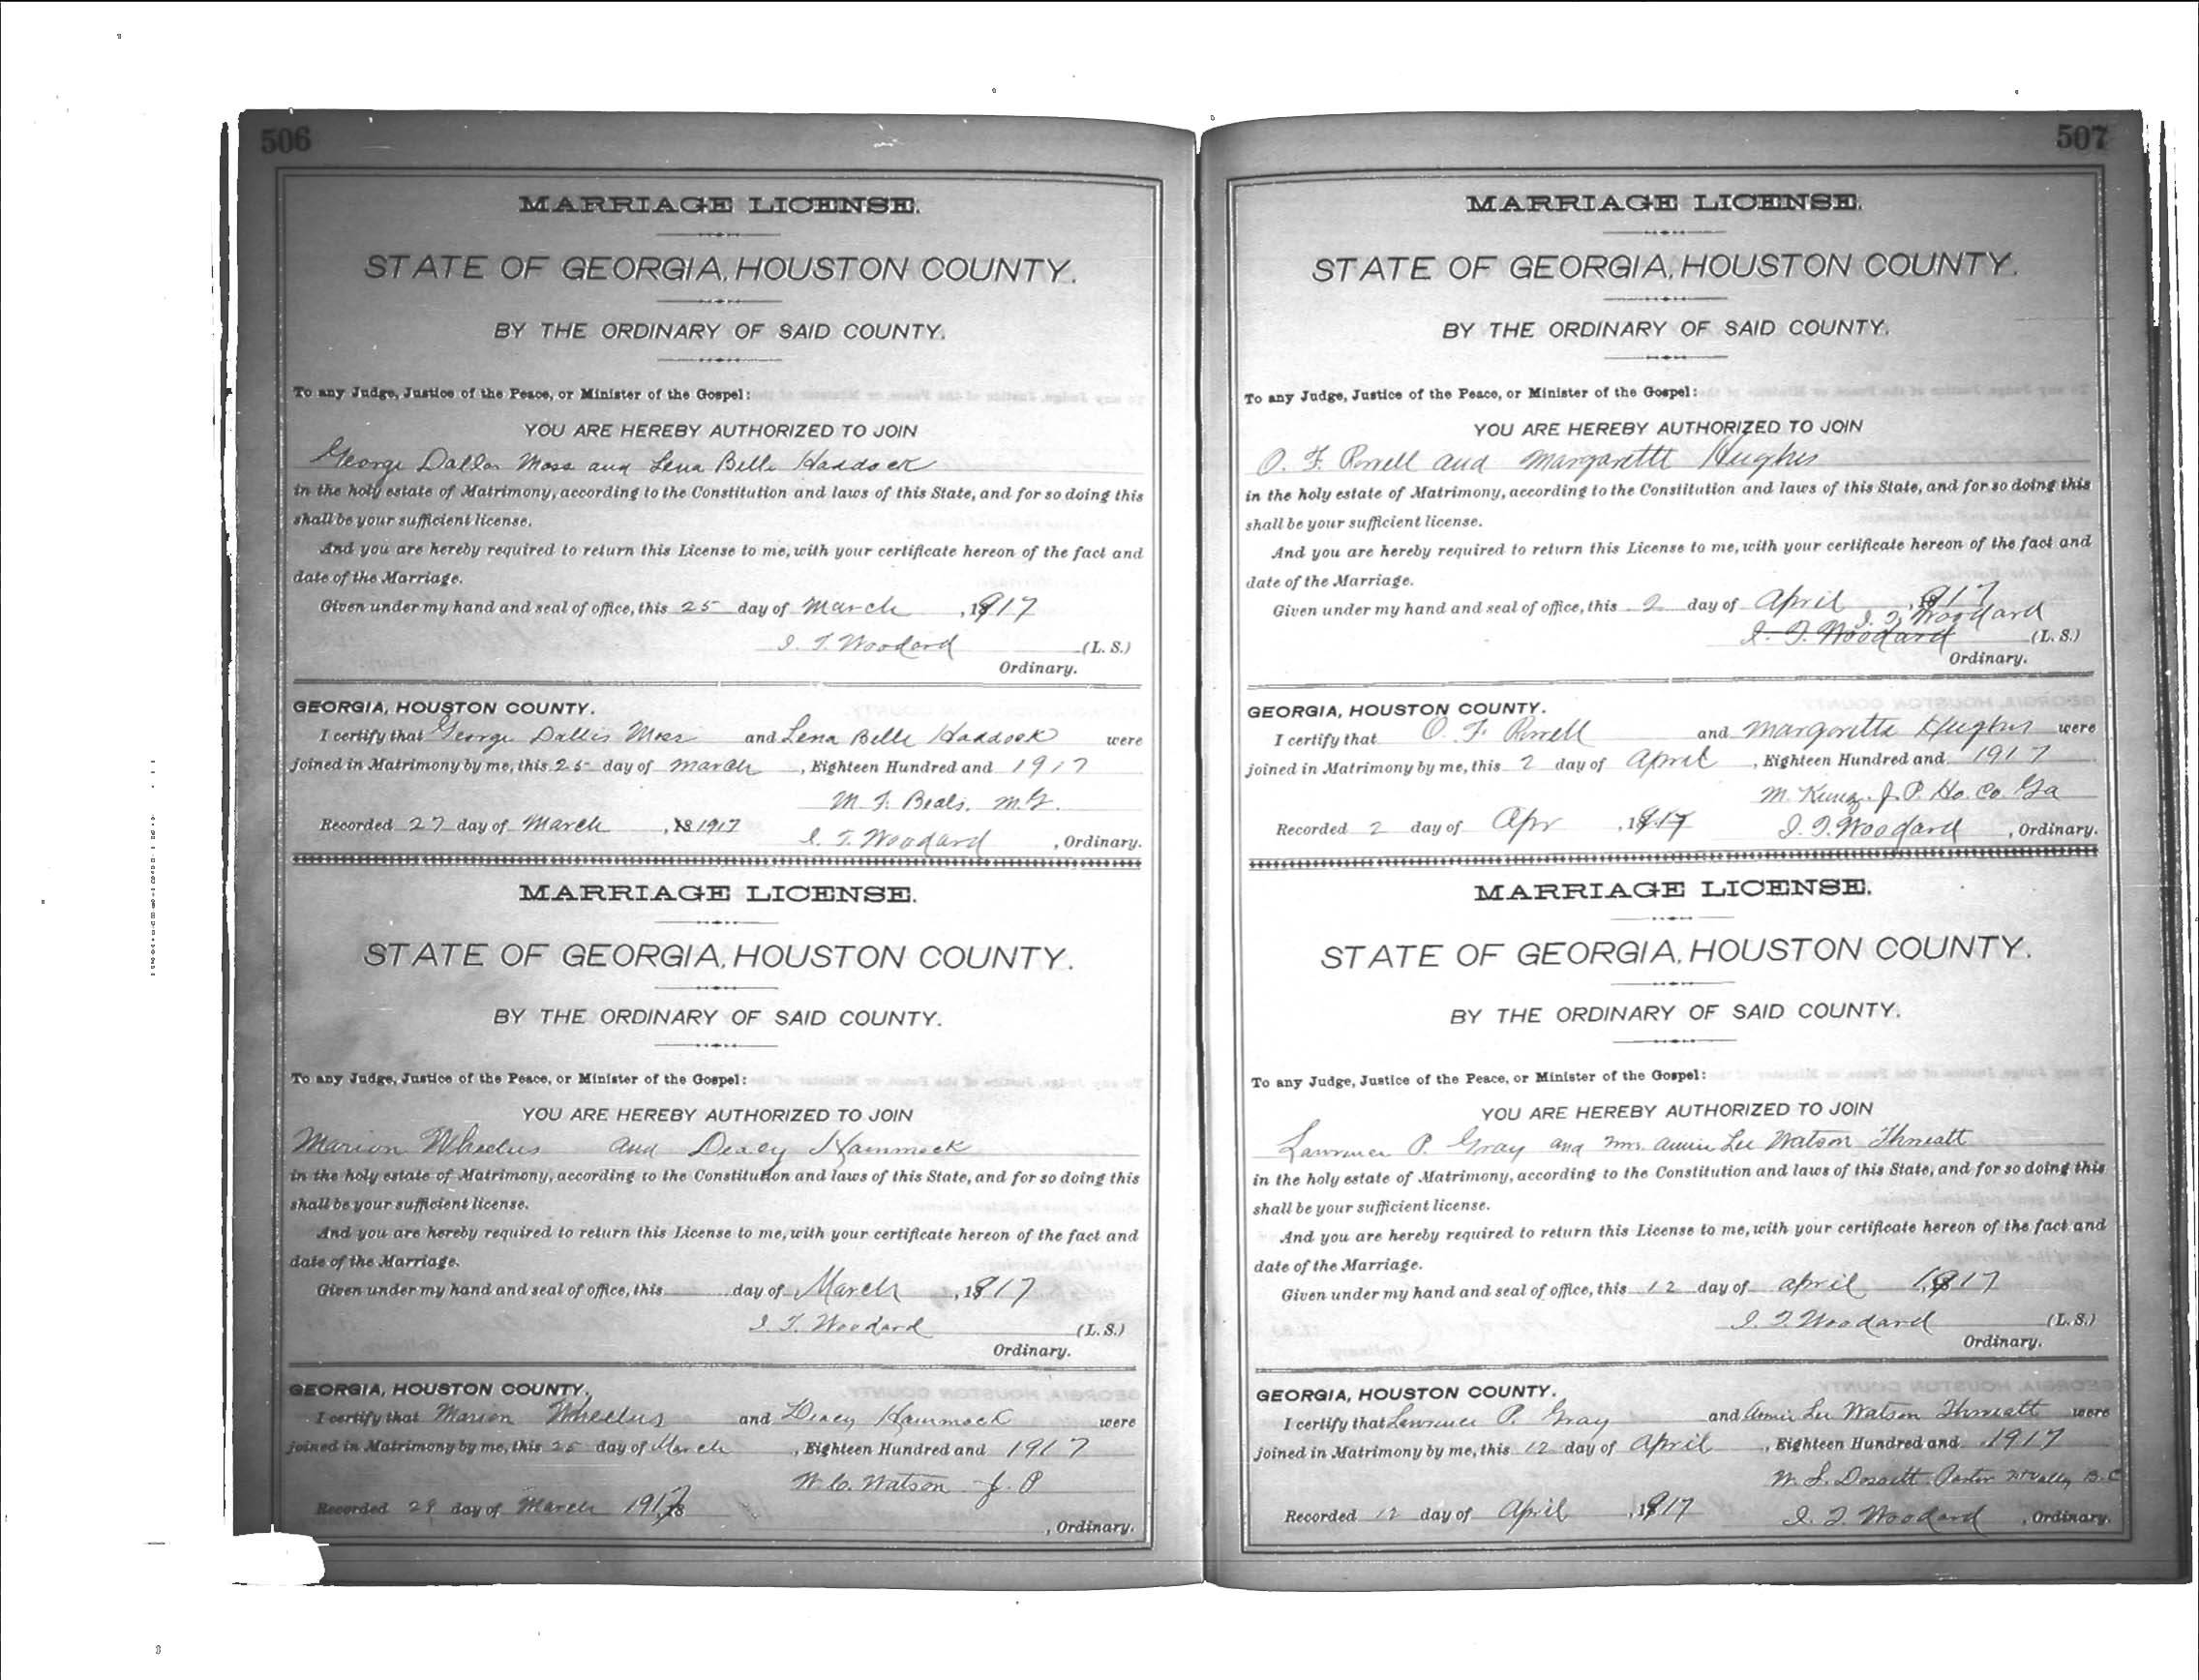 506
MARRIAGE LICENSE.
STATE OF GEORGIA, HOUSTON COUNTY.
BY THE ORDINARY OF SAID COUNTY.
To any Judge, Justice of the Peace, or Minister of the Gospel:
YOU ARE HEREBY AUTHORIZED TO JOIN
George Dallas Moss and Lena Belle Haddock
in the holy estate of Matrimony, according to the Constitution and laws of this State, and for so doing this
shall be your sufficient license.
And you are hereby required to return this License to me, with your certificate hereon of the fact and
date of the Marriage.
Given under my hand and seal of office, this 25 day of March, 1917
I. T. Woodard (L. S.)
Ordinary.
GEORGIA, HOUSTON COUNTY.
I certify that George Dallis Moss and Lena Belle Haddock were
joined in Matrimony by me, this 25 day of March, Eighteen Hundred and 1917
M. F. Beals. M.G.
Recorded 27 day of March, 18 1917
I. T. Woodard, Ordinary.
MARRIAGE LICENSE.
STATE OF GEORGIA, HOUSTON COUNTY.
BY THE ORDINARY OF SAID COUNTY.
To any Judge, Justice of the Peace, or Minister of the Gospel:
YOU ARE HEREBY AUTHORIZED TO JOIN
Marion Wheelus and Dexcy Hammock
in the holy estate of Matrimony, according to the Constitution and laws of this State, and for so doing this
shall be your sufficient license.
And you are hereby required to return this License to me, with your certificate hereon of the fact and
date of the Marriage.
Given under my hand and seal of office, this day of March, 1917
I. T. Woodard (L. S.)
Ordinary.
GEORGIA, HOUSTON COUNTY.
I certify that Marion Wheelus and Dexcy Hammock were
joined in Matrimony by me, this 25 day of March, Eighteen Hundred and 1917
W. C. Watson J. P
Recorded 29 day of March 1917
, Ordinary.
507
MARRIAGE LICENSE.
STATE OF GEORGIA, HOUSTON COUNTY.
BY THE ORDINARY OF SAID COUNTY.
To any Judge, Justice of the Peace, or Minister of the Gospel:
YOU ARE HEREBY AUTHORIZED TO JOIN
O. F. and Margarette Hughes
in the holy estate of Matrimony, according to the Constitution and laws of this State, and for so doing this
shall be your sufficient license.
And you are hereby required to return this License to me, with your certificate hereon of the fact and
date of the Marriage.
Given under my hand and seal of office, this 2 day of April, 1917
I. T. Woodard
I. T. Woodard (L. S.)
Ordinary.
GEORGIA, HOUSTON COUNTY.
I certify that O. F. and Margaretta Hughes were
joined in Matrimony by me, this 2 day of April, Eighteen Hundred and 1917
M. J. P. Ho. Co. Ga
Recorded 2 day of Apr, 1917
I. T. Woodard, Ordinary.
MARRIAGE LICENSE.
STATE OF GEORGIA, HOUSTON COUNTY.
BY THE ORDINARY OF SAID COUNTY.
To any Judge, Justice of the Peace, or Minister of the Gospel:
YOU ARE HEREBY AUTHORIZED TO JOIN
Lawrence P. Gray and Mrs. Annie Lee Watson Threatt
in the holy estate of Matrimony, according to the Constitution and laws of this State, and for so doing this
shall be your sufficient license.
And you are hereby required to return this License to me, with your certificate hereon of the fact and
date of the Marriage.
Given under my hand and seal of office, this 12 day of April 1917
I. T. Woodard (L. S.)
Ordinary.
GEORGIA, HOUSTON COUNTY.
I certify that Lawrence P. Gray and Annie Lee Watson Threatt were
joined in Matrimony by me, this 12 day of April, Eighteen Hundred and 1917
W. L. Dossett. Pastor B. C
Recorded 12 day of April, 1917
I. T. Woodard, Ordinary.